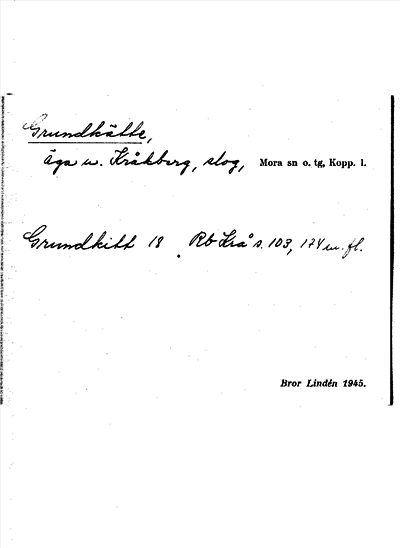 Grundkätte,
äga u. Kråkberg, slog, Mora sn o. tg, Kopp. l.
Grundkitt 18 Rb Krå s. 103, 174 m. fl.
Bror Lindén 1945.